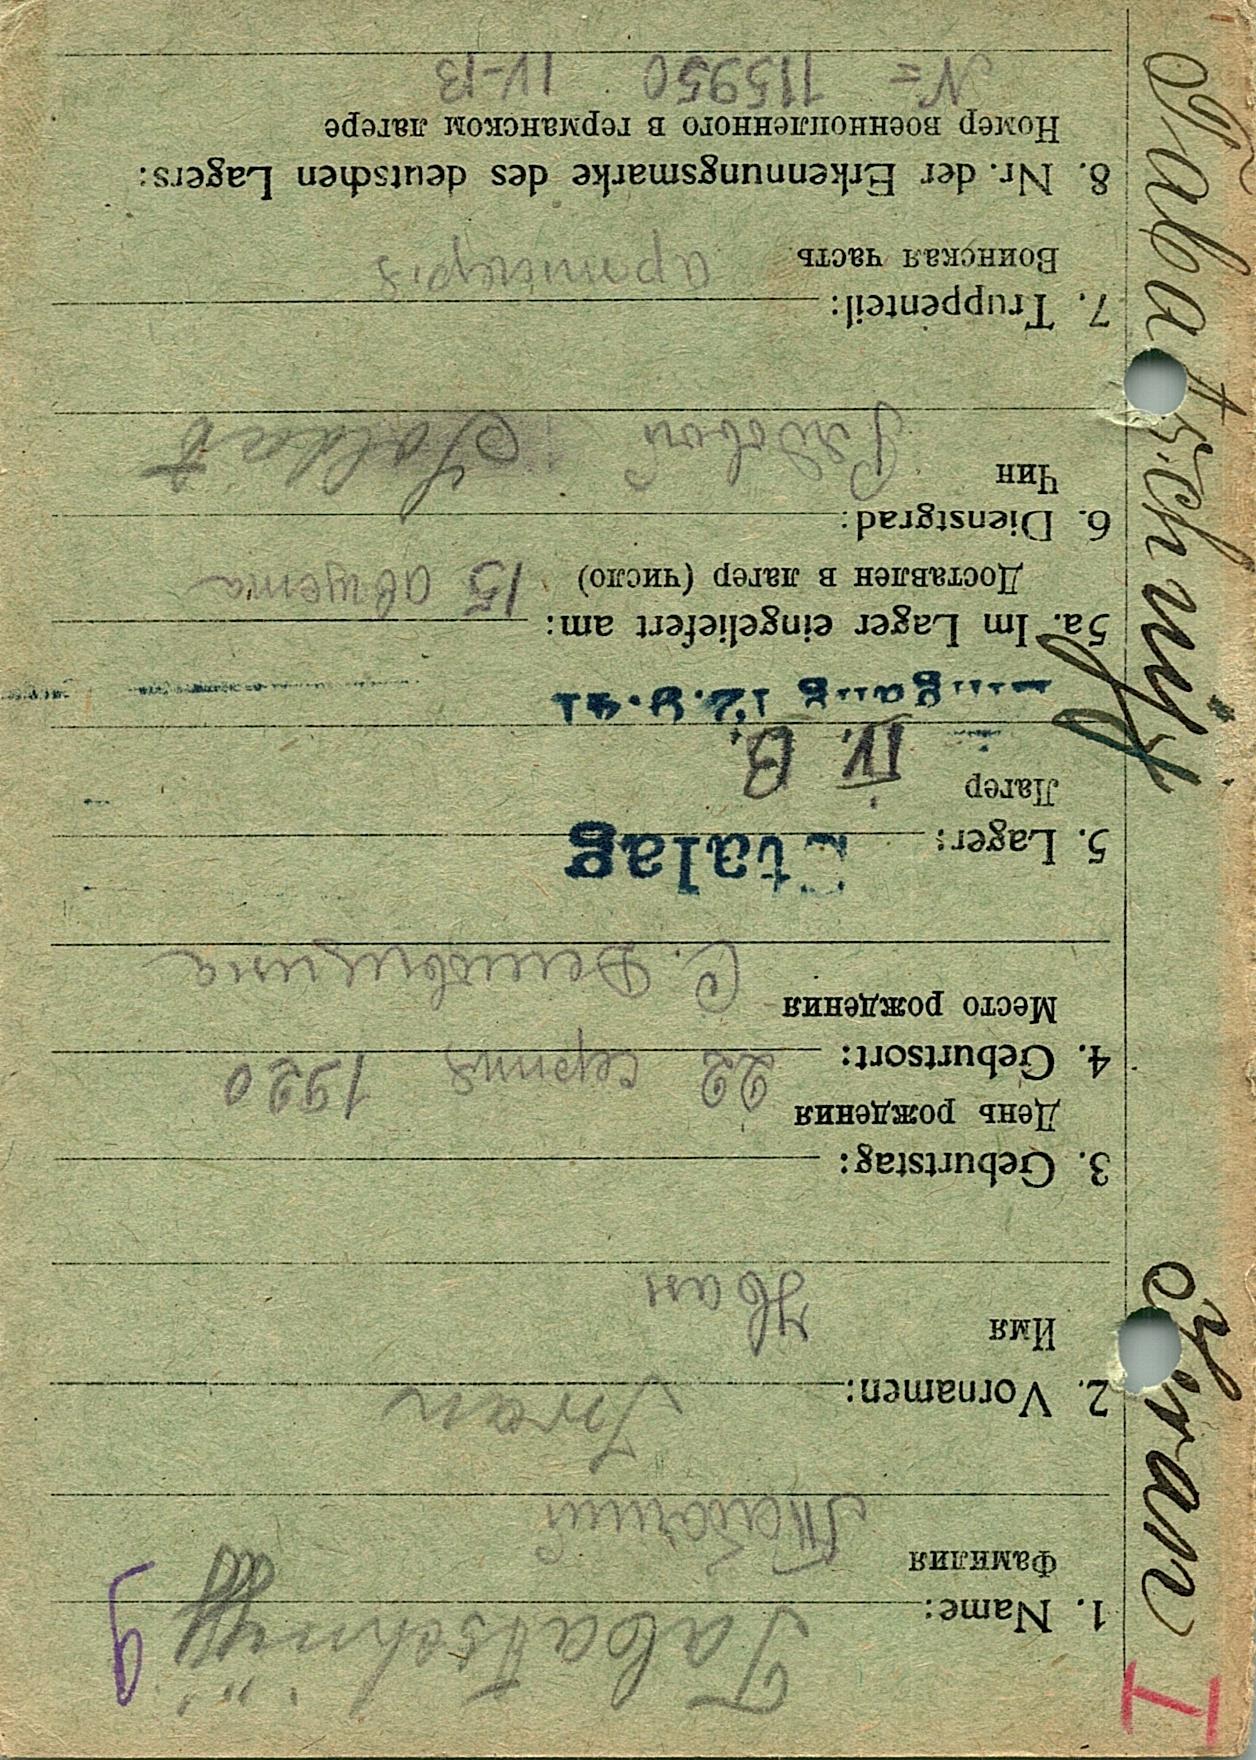 Tabatschnij Iwan
I
Tabatschnijj
9
1. Name:
Фамилия Табачний
2. Vornamen: Iwan
Имя Iван
3. Geburtstag:
День рождения 22 серпня 1920
4. Geburtsort:
Место рождения С.
5. Lager: Stalag
Лагер IV. B.
Eingang 12.9.41
5a. Im Lager eingeliefert am:
Доставлен в лагер (число) 15 августа
6. Dienstgrad:
Чин Рядовой Soldat
7. Truppenteil:
Воинская часть артилерія
8. Nr. der Erkennungsmarke des deutschen Lagers:
Номер военнопленного в германском лагере
№= 115950 IV-13